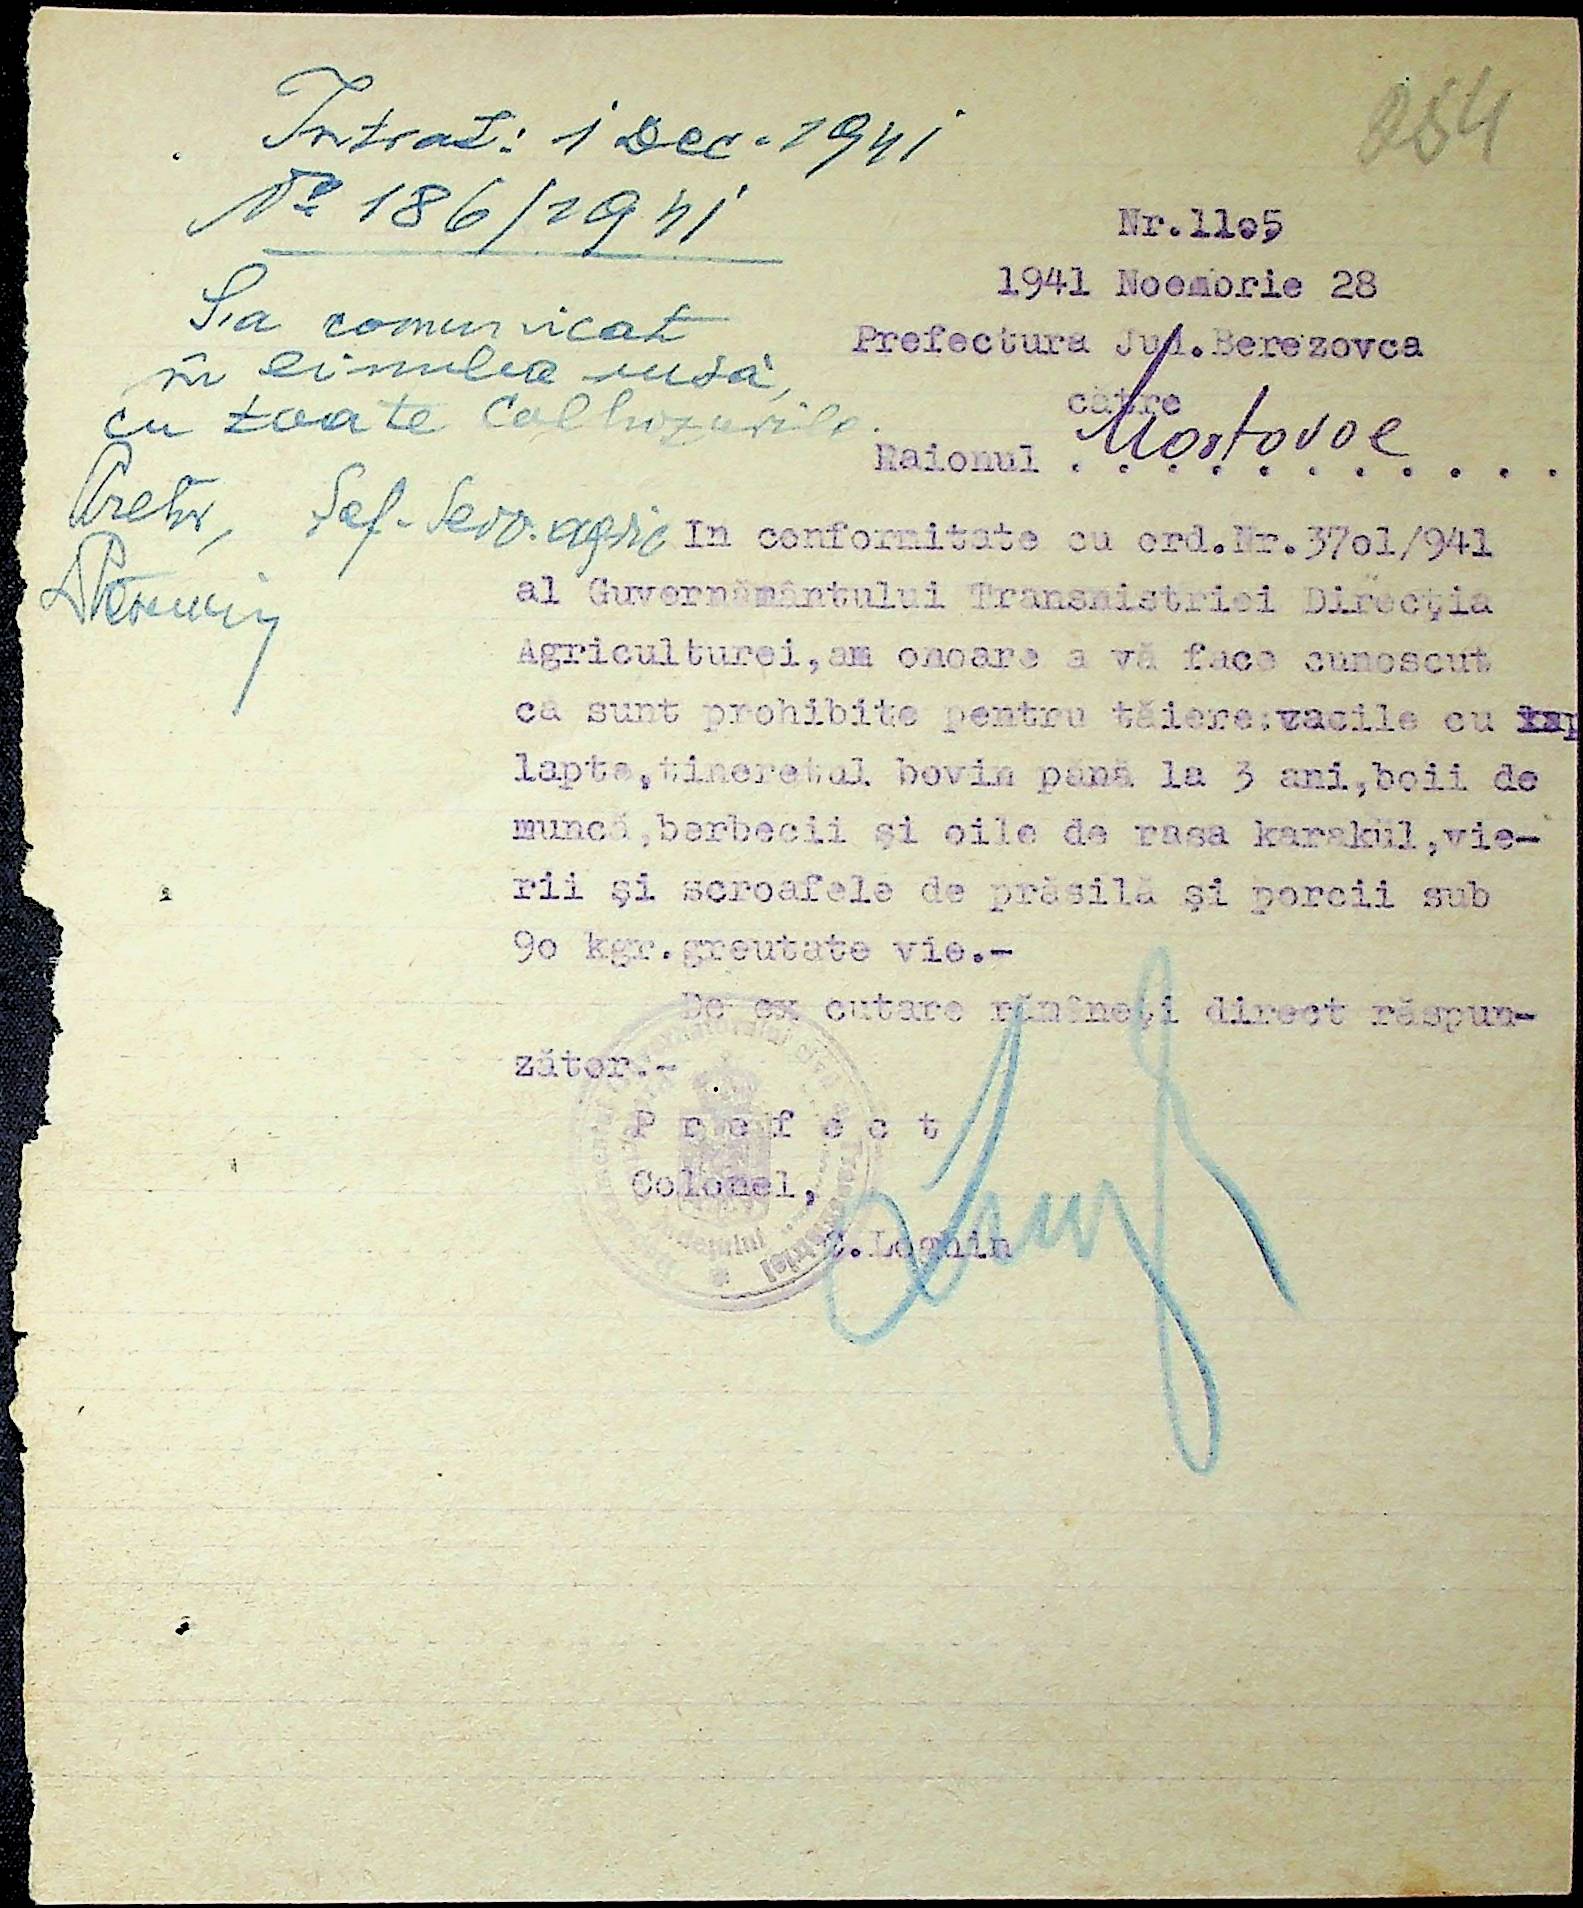 254
Intrat: 1 Dec. 1941
No 186/1941
S'a comunicat
în limba rusă,
cu toate Colhozurile.
Pretor, Șef-Serv. agric
Nr.11o5
1941 Noembrie 28
Prefectura Jud.Berezovca
către
Raionul Mostovoe
In conformitate cu ord.Nr.37o1/941
al Guvernământului Transnistriei Direcţia
Agriculturei,am onoare a vă face cunoscut
că sunt prohibite pentru tăiere:vacile cu
lapte,tineretul bovin până la 3 ani,boii de
muncă,berbecii şi oile de rasa karakül,vie-
rii şi scroafele de prăsilă şi porcii sub
9o kgr.greutate vie.-
De ex cutare rămîneţi direct răspun-
zător.-
P r e f e c t
Colonel,
C.Loghin